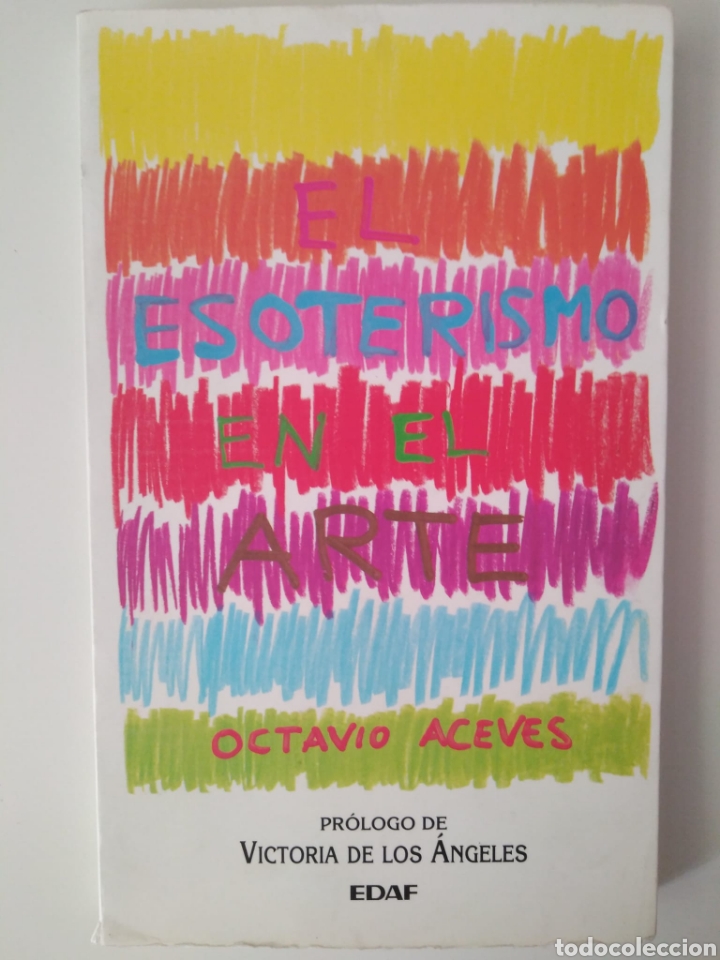 EL
ESOTERISMO
EN EL
ARTE
OCTAVIO ACEVES
PRÓLOGO DE
VICTORIA DE LOS ÁNGELES
EDAF
todocoleccion